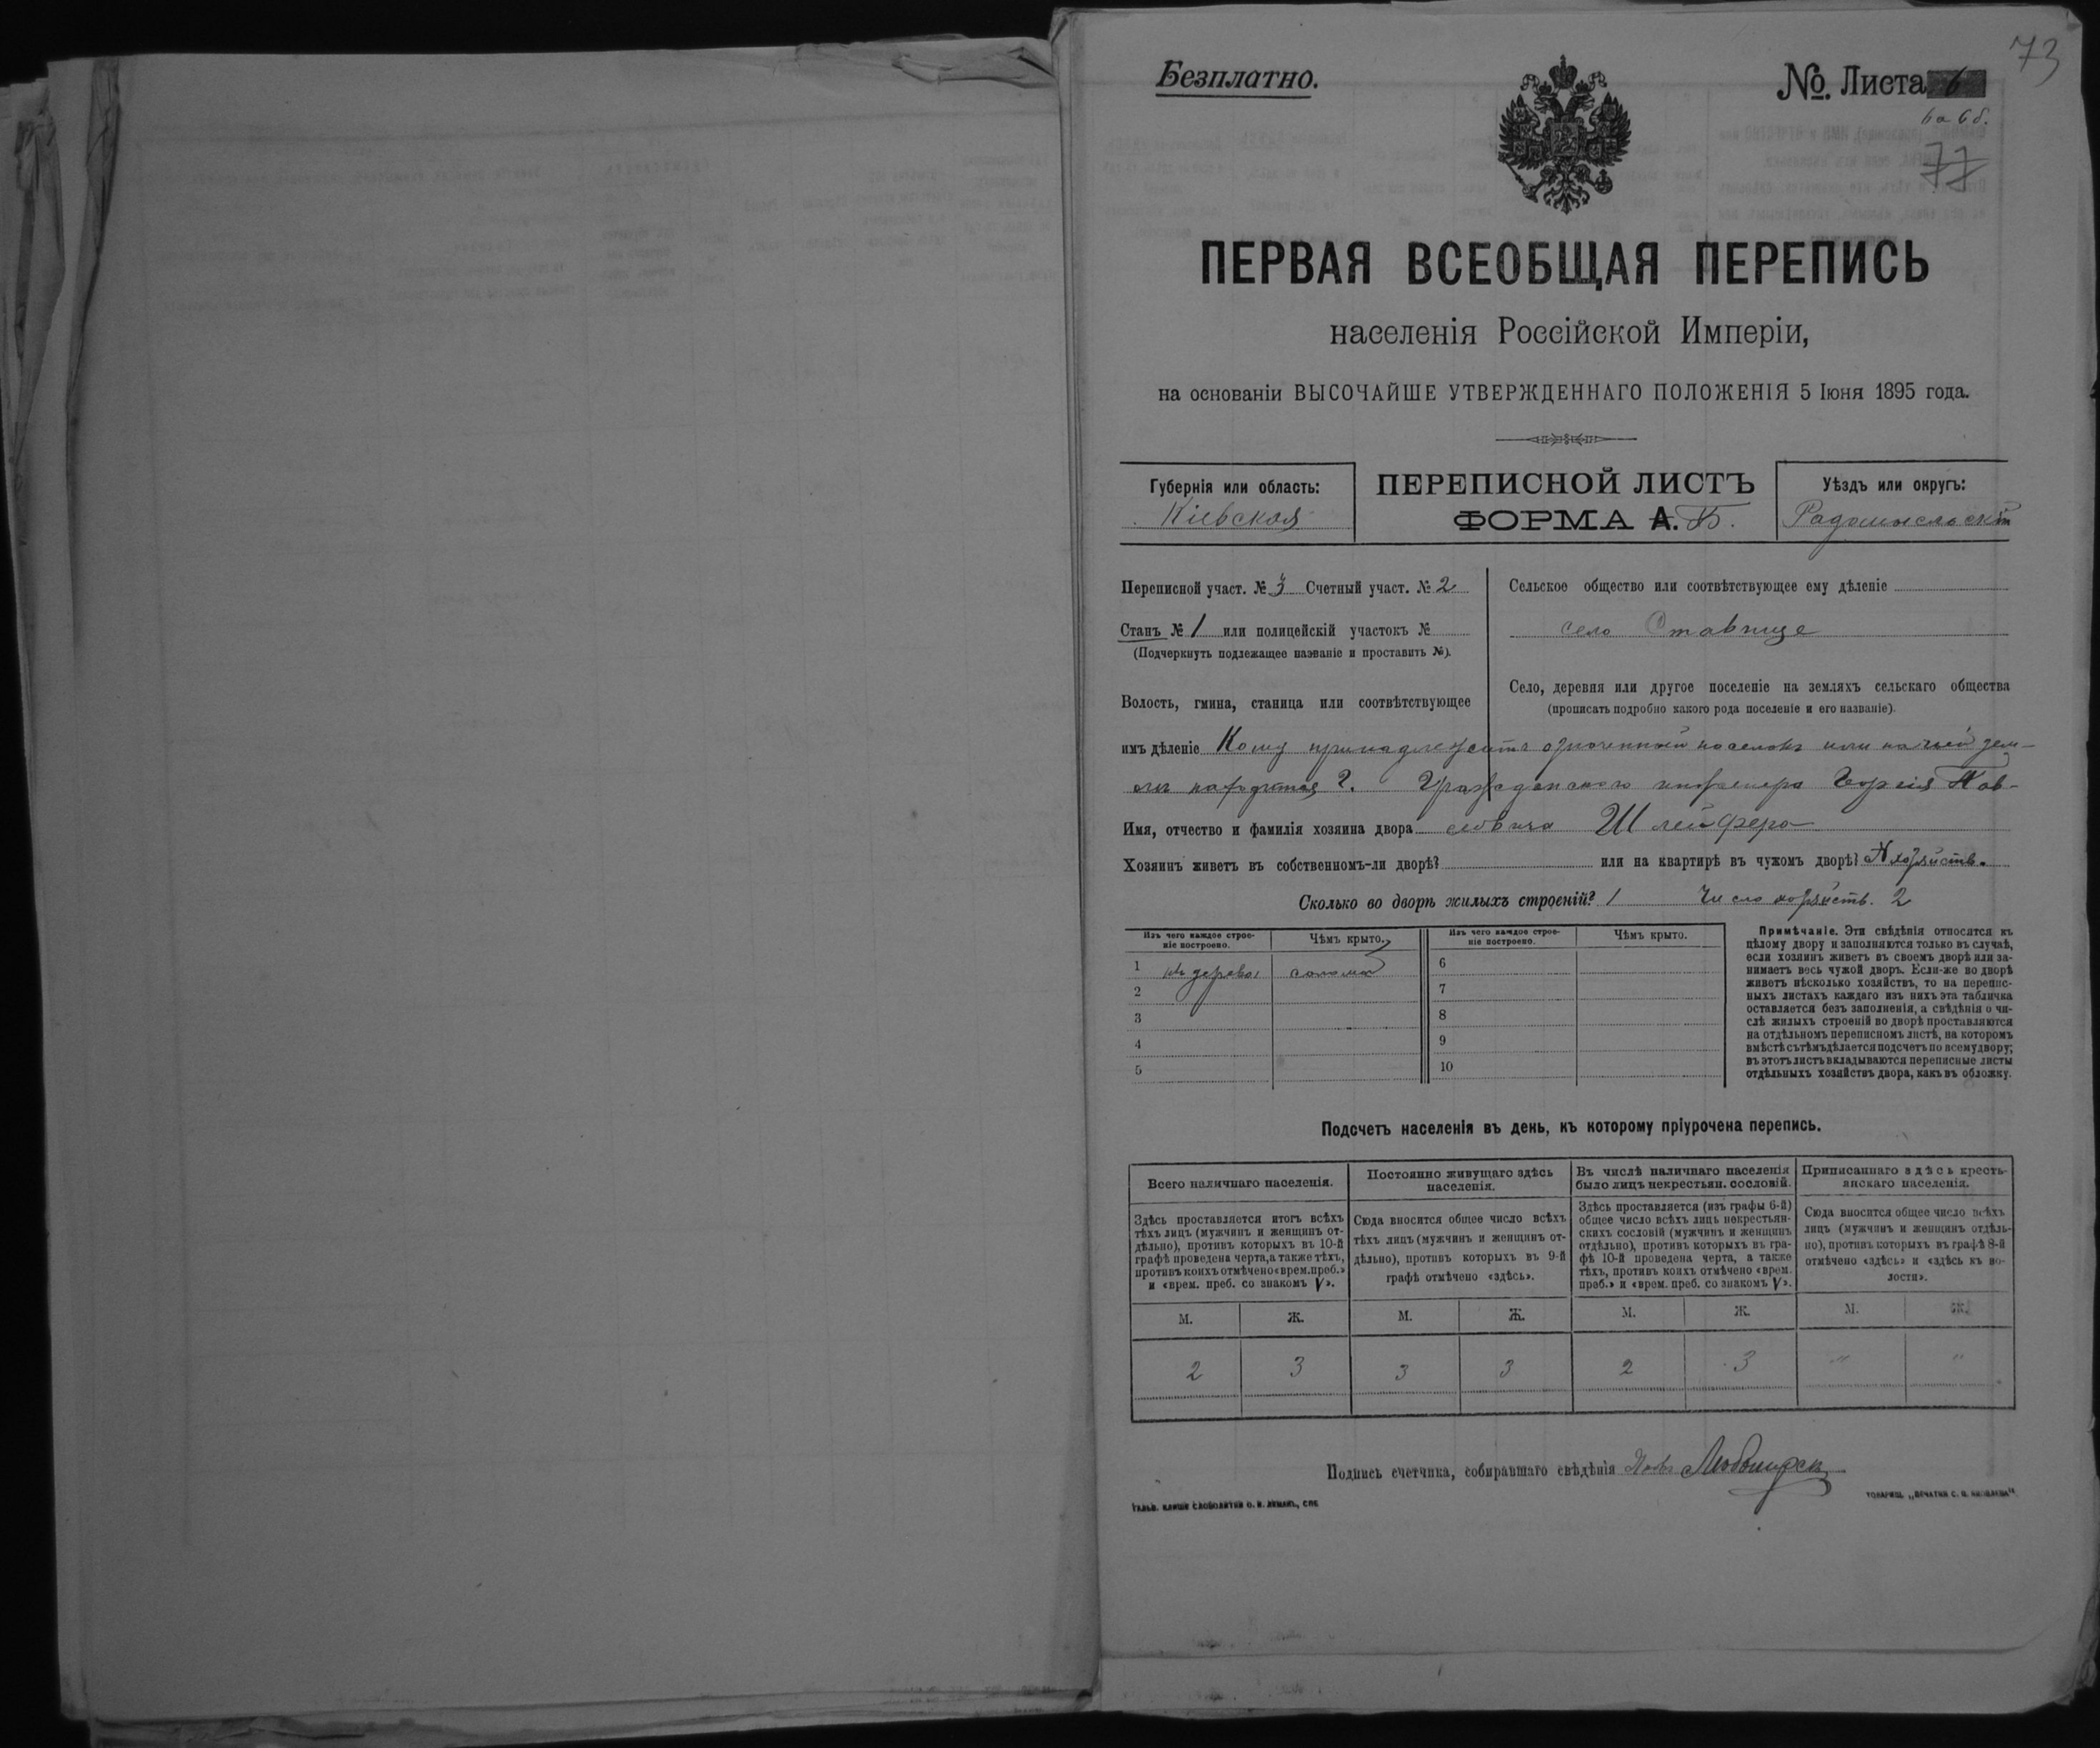 73
Безплатно.
№ Листа 6
6а 6б.
77
ПЕРВАЯ ВСЕОБЩАЯ ПЕРЕПИСЬ
населенія Россійской Имперіи,
на основаніи ВЫСОЧАЙШЕ УТВЕРЖДЕННАГО ПОЛОЖЕНІЯ 5 Іюня 1895 года.
Губернія или область:
Кіевская
ПЕРЕПИСНОЙ ЛИСТЪ
ФОРМА А. Б.
Уѣздъ или округъ:
Радомысльскій
Переписной участ. № 3 Счетный участ. № 2
Станъ № 1 или полицейскій участокъ №
(Подчеркнуть подлежащее названіе и проставить №).
Волость, гмина, станица или соотвѣтствующее
Сельское общество или соотвѣтствующее ему дѣленіе
село Ставище
Село, деревня или другое поселеніе на земляхъ сельскаго общества
(прописать подробно какого рода поселеніе и его названіе).
имъ дѣленіе Кому принадлежитъ означенный поселокъ или на чьей зем-
лѣ находится? Гражданскаго инженера Георгія Пав-
Имя, отчество и фамилія хозяина двора ловича Шлейфера
Хозяинъ живетъ въ собственномъ-ли дворѣ? или на квартирѣ въ чужомъ дворѣ? хозяйств.
Сколько во дворѣ жилыхъ строеній? 1 Число хозяйств. 2
Изъ чего каждое строе-
ніе построено.
Чѣмъ крыто.
Изъ чего каждое строе-
ніе построено.
Чѣмъ крыто.
1 изъ дерева соломой
2
3
4
5
6
7
8
9
10
Примѣчаніе. Эти свѣдѣнія относятся къ
цѣлому двору и заполняются только въ случаѣ,
если хозяинъ живетъ въ своемъ дворѣ или за-
нимаетъ весь чужой дворъ. Если-же во дворѣ
живетъ нѣсколько хозяйствъ, то на перепис-
ныхъ листахъ каждаго изъ нихъ эта табличка
оставляется безъ заполненія, а свѣдѣнія о чи-
слѣ жилыхъ строеній во дворѣ проставляются
на отдѣльномъ переписномъ листѣ, на которомъ
вмѣстѣ съ тѣмъ дѣлается подсчетъ по всему двору;
въ этотъ листъ вкладываются переписные листы
отдѣльныхъ хозяйствъ двора, какъ въ обложку.
Подсчетъ населенія въ день, къ которому пріурочена перепись.
Всего наличнаго населенія.
Здѣсь проставляется итогъ всѣхъ
тѣхъ лицъ (мужчинъ и женщинъ от-
дѣльно), противъ которыхъ въ 10-й
графѣ проведена черта, а также тѣхъ,
противъ коихъ отмѣчено «врем. преб.»
и «врем. преб. со знакомъ V».
Постоянно живущаго здѣсь
населенія.
Сюда вносится общее число всѣхъ
тѣхъ лицъ (мужчинъ и женщинъ от-
дѣльно), противъ которыхъ въ 9-й
графѣ отмѣчено «здѣсь».
Въ числѣ наличнаго населенія
было лицъ некрестьян. сословій.
Здѣсь проставляется (изъ графы 6-й)
общее число всѣхъ лицъ некрестьян-
скихъ сословій (мужчинъ и женщинъ
отдѣльно), противъ которыхъ въ гра-
фѣ 10-й проведена черта, а также
тѣхъ, противъ коихъ отмѣчено «врем.
преб.» и «врем. преб. со знакомъ V».
Приписаннаго здѣсь кресть-
янскаго населенія.
Сюда вносится общее число всѣхъ
лицъ (мужчинъ и женщинъ отдѣль-
но), противъ которыхъ въ графѣ 8-й
отмѣчено «здѣсь» и «здѣсь къ во-
лости».
М. Ж. М. Ж. М. Ж. М. Ж.
2 3 3 3 2 3 " "
Подпись счетчика, собиравшаго свѣдѣнія
ГАЛЬВ. КЛИШЕ СЛОВОЛИТНИ О. И. ЛЕМАНЪ, СПБ.
ТОВАРИЩ. „ПЕЧАТНЯ С. П. ЯКОВЛЕВА“.